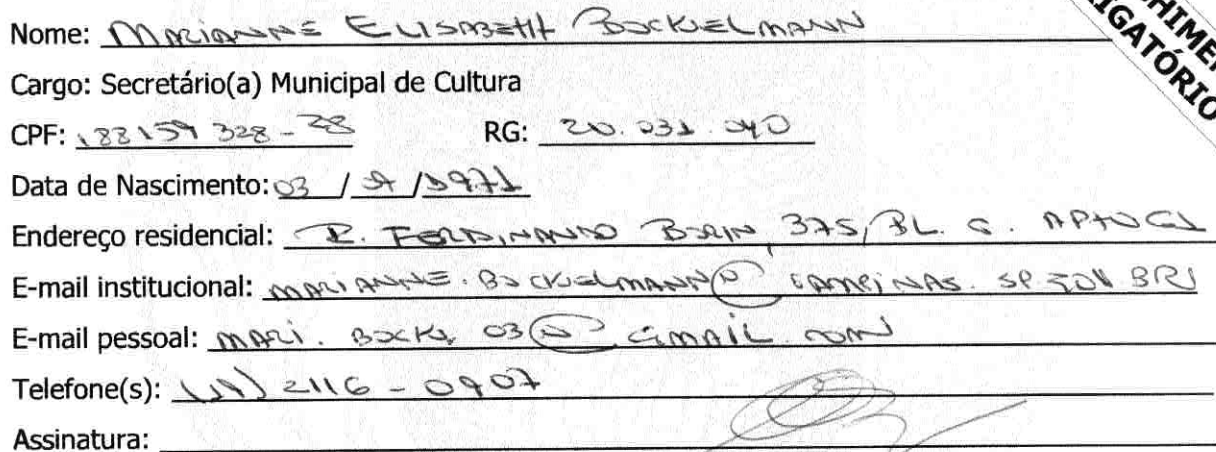 Nome: MARIANNE ELISABETH BOCKELMANN
Cargo: Secretário(a) Municipal de Cultura
CPF: 188 159 328 - 28 RG: 20.031.040
Data de Nascimento: 03 / /1971
Endereço residencial: R. FERDINANDO BORIN, 375, BL. G.
E-mail institucional: MARIANNE.BOCKELMANN@CAMPINAS.SP.GOV.BR
E-mail pessoal: MARI. 03@GMAIL.COM
Telefone(s): (19) 2116-0907
Assinatura: